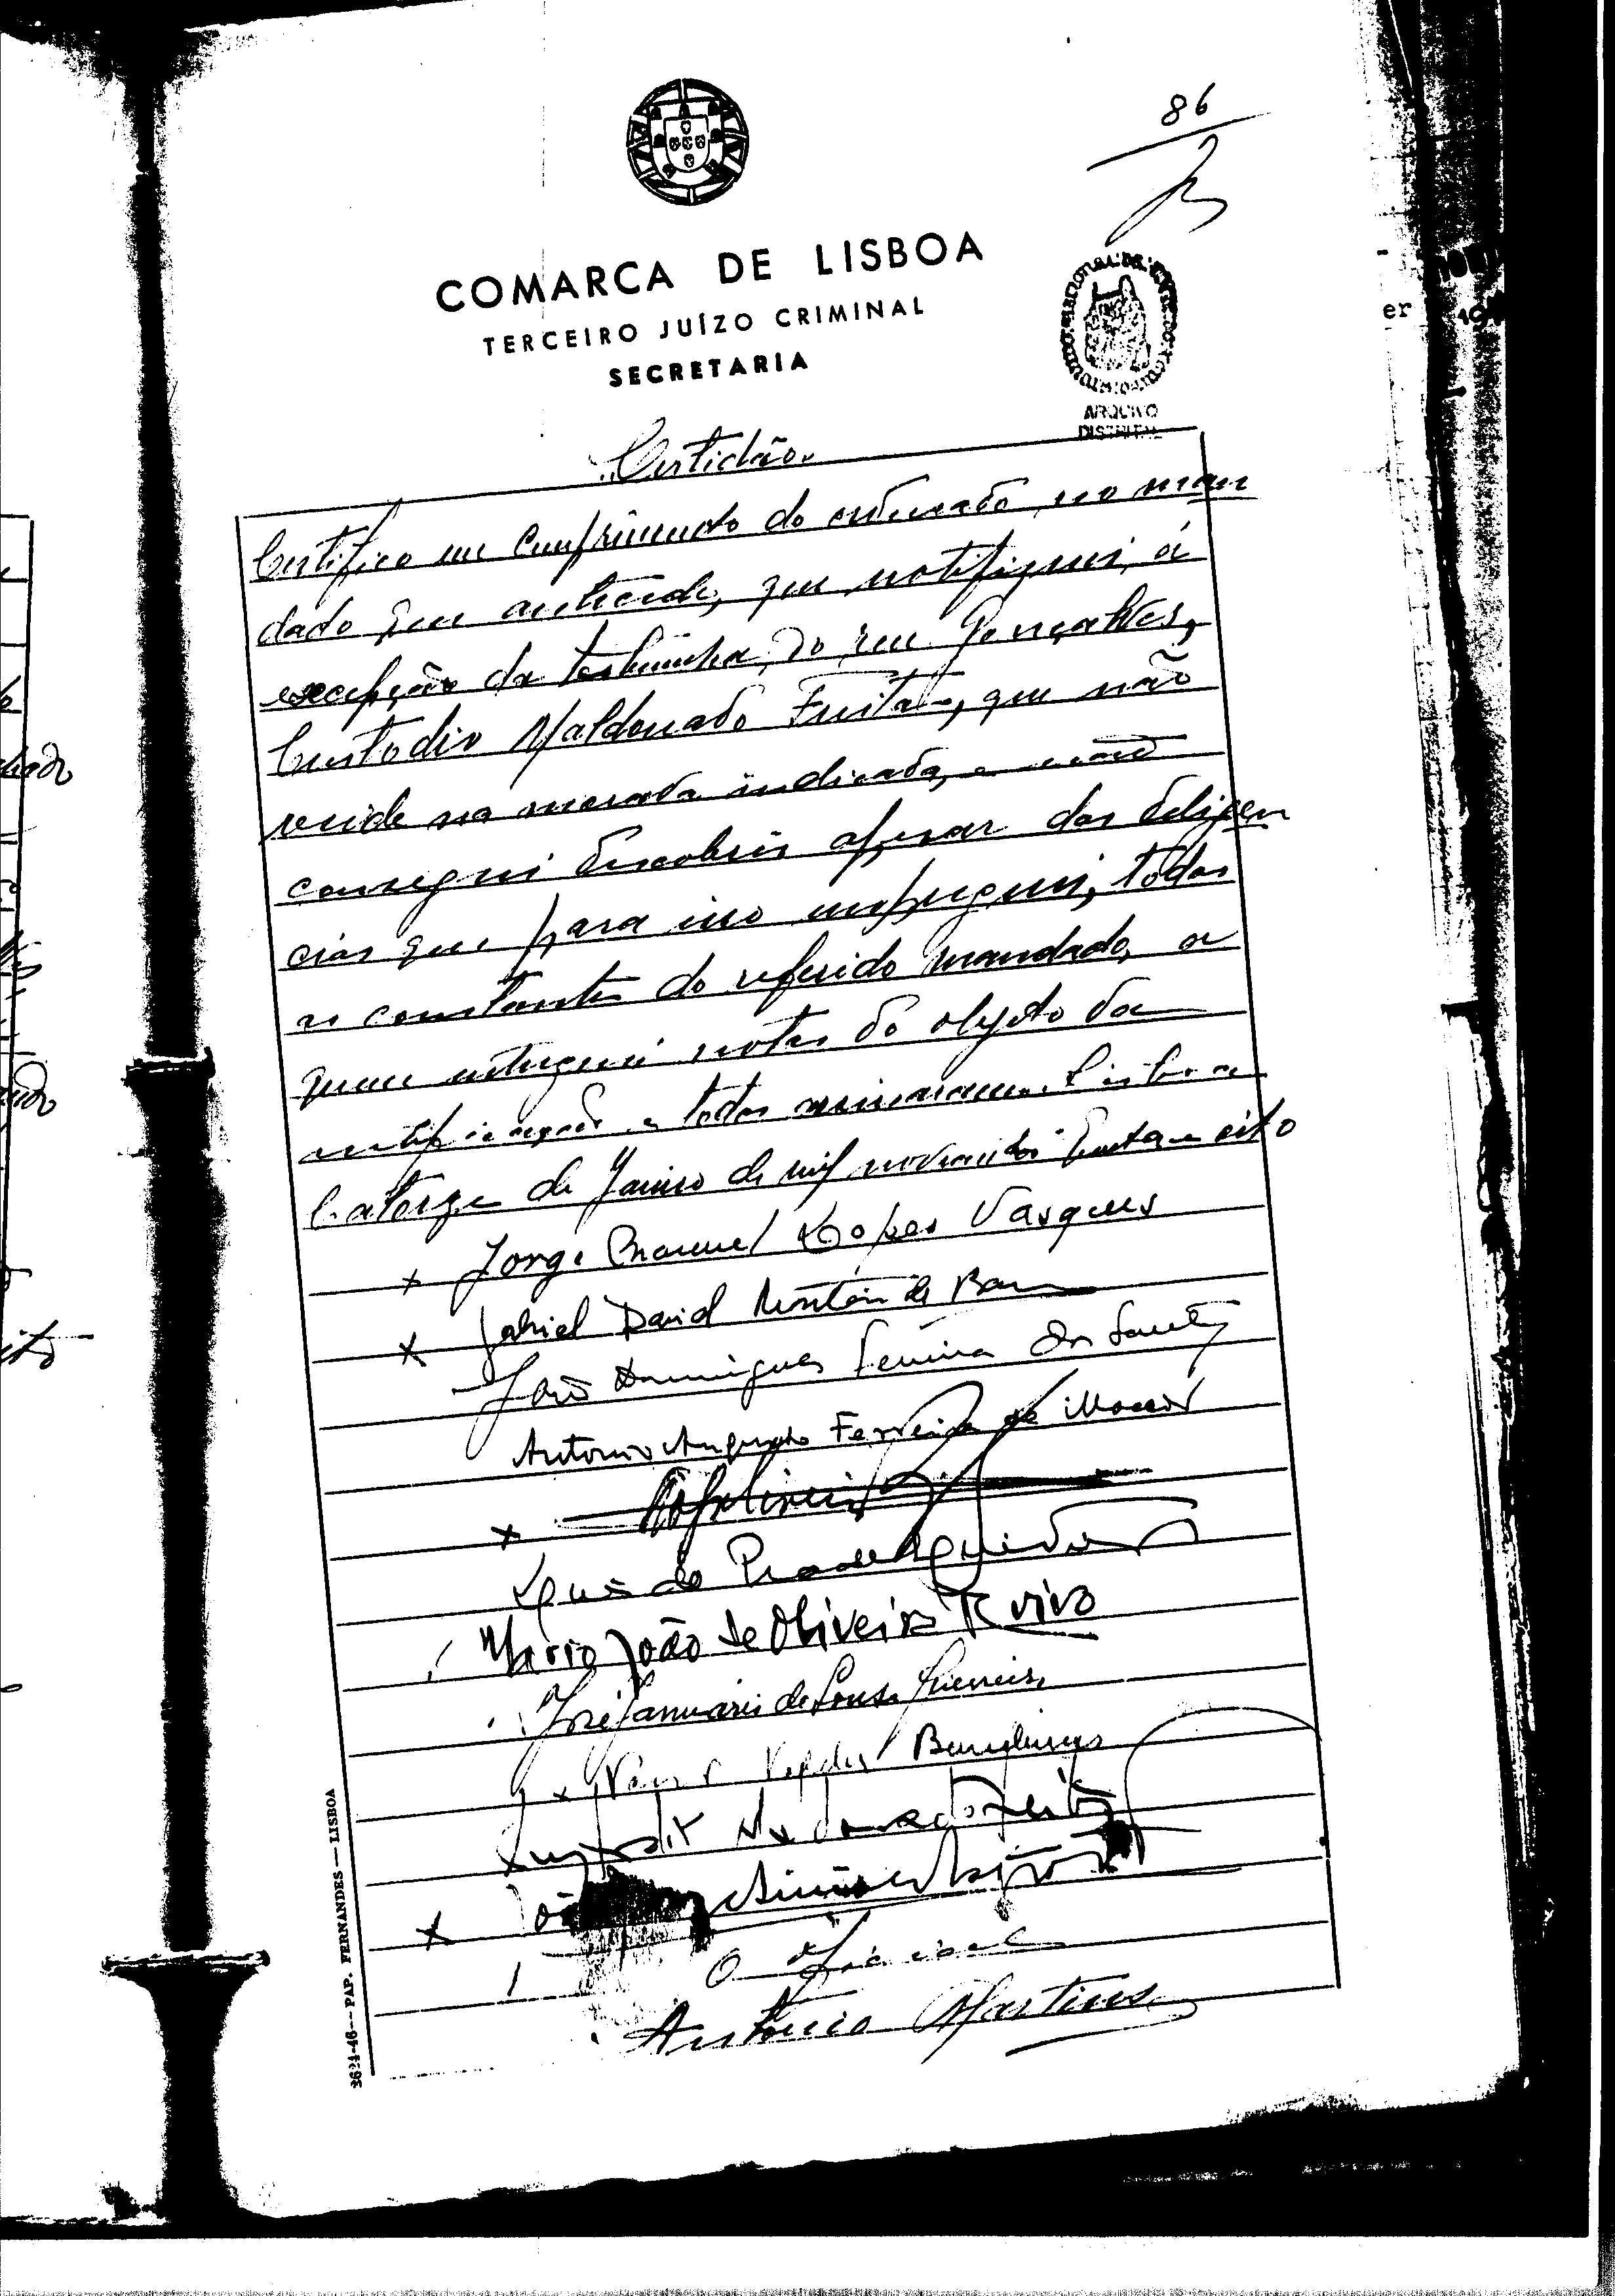 86
COMARCA DE LISBOA
TERCEIRO JUÍZO CRIMINAL
SECRETARIA
ARQUIVO
DISTRITAL
Certidão
Certifico em cumprimento do ordenado, no man
dado que antecede, que notifiquei, á
excepção da testemunha, do reu Gonçalves,
Custodio Maldonado Freitas, que não
reside na morada indicada, e não
consegui descobrir apesar das deligen
cias que para isso empreguei, todas
as constantes do referido mandado, a
quem entreguei notas do objeto da
notificação e todos assinaram. Lisboa
Catorze de Janeiro de mil novecentos e oito
x Jorge Manuel Lopes Vasques
x Gabriel David de
João Domingues Ferreira dos Santos
Antonio Augusto Ferreira de Macedo
x
Luis de
Mario João de Oliveira Ruivo
José Januario de Sousa
x
Maldonado Freitas
x
O Oficial
Antonio Martins
3624-46 — PAP. FERNANDES — LISBOA
er